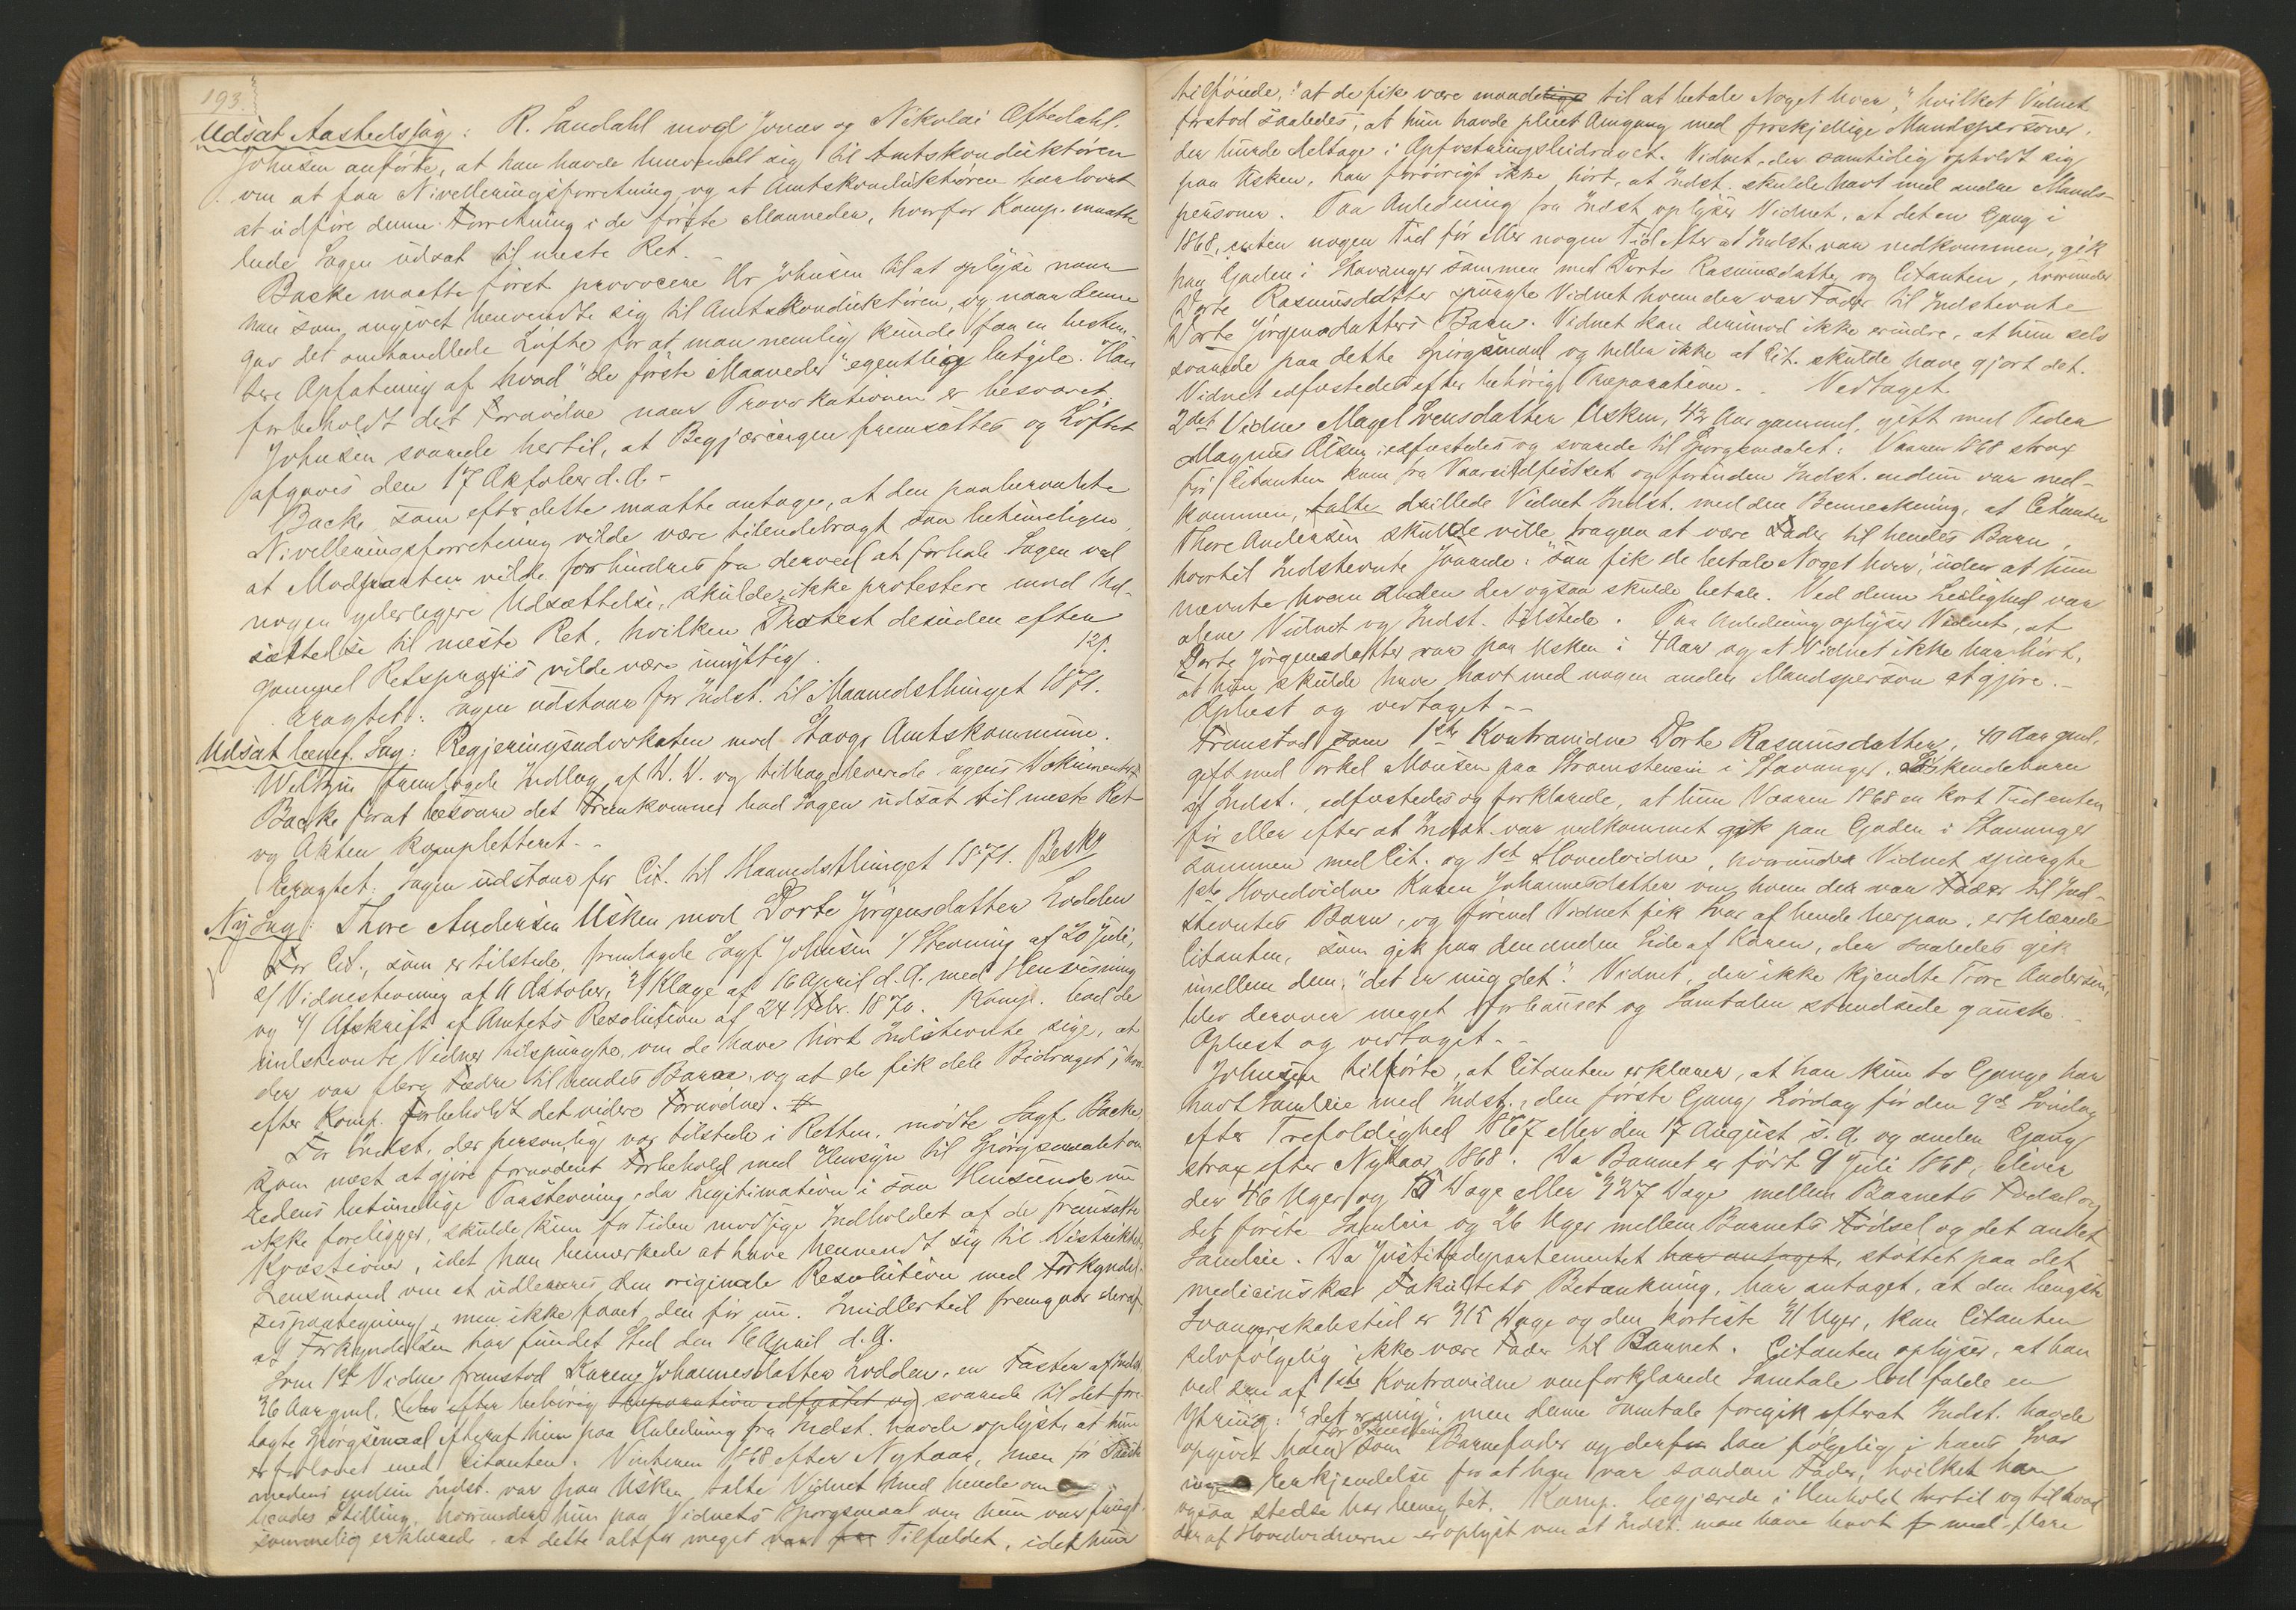 193.
Udsat Aastedssag: R. Sandahl mod Jonas og Nikolai Oftedahl.
Johnsen anførte, at han havde henvendt sig til Amtskonduktøren
om at faa Nivelleringsforretning og at Amtskonduktøren har lovet
at udføre denne Forretning i de første Maaneder, hvorfor Komp. maatte
bede Sagen udsat til næste Ret.
Backe maatte først provocere Hr Johnsen til at oplyse naar
han som angivet henvendte sig til Amtskonduktøren, og naar denne
gav det omhandlede Løfte for at man nemlig kunde faa en bestem-
tere Opfatning af hvad "de første Maaneder" egentlig betyde. Han
forbeholdt det Fornødne naar Provokationen er besvaret.
Johnsen svarede hertil, at Begjæringen fremsattes og Løftet
afgaves den 17 Oktober d. A. -
Backe som efter dette maatte antage, at den paaberaabte
Nivelleringsforretning vilde være tilendebragt saa betimeligen,
at Modparten vilde forhindres fra derved at forhale Sagen ved
nogen yderligere Udsættelse, skulde ikke protestere mod Ud-
sættelse til næste Ret, hvilken Protest desuden efter
gammel Retspraxis vilde være unyttig.
12ß.
Eragtet: Sagen udstaar for Indst. til Maanedsthinget 1871.
Udsat benef. Sag: Regjeringsadvokaten mod Stavgr Amtskommune.
fremlagde Indlæg af D. D. og tilbageleverede Sagens Dokumenter
Backe forat besvare det Fremkomne bad Sagen udsat til næste Ret
og Akten kompletteret. -
Eragtet: Sagen udstaar for Cit. til Maanedsthinget 1871. Besk
Ny Sag: Thore Andersen Usken mod Dorte Jørgensdatter Lodden
For Cit., som er tilstede, fremlagde Sagf Johnsen 1/ Stevning af 20 Juli,
2/ Vidnestevning af 11 Oktober, 3/ Klage af 16 April d. A. med Henvisning
og 4/ Afskrift af Amtets Resolution af 24 Febr. 1870. Komp. bad de
indstevnte Vidner tilspurgte, om de have hørt Indstevnte sige, at
der var flere Fædre til hendes Barn, og at de fik dele Bidraget, hvor-
efter Komp. forbeholdt det videre Fornødne.
For Indst., der personlig var tilstede i Retten, mødte Sagf. Backe
som næst at gjøre fornødent Forbehold med Hensyn til Spørgsmaalet om
Edens betimelige Paastevning, da Legitimation i saa Henseende nu
ikke foreligger, skulde kun for Tiden modsige Indholdet af de fremsatte
Kvæstioner, idet han bemærkede at have henvendt sig til Distriktets
Lensmand om at udleveres den originale Resolution med Forkyndel-
sespaategning, men ikke faaet den før nu. Imidlertid fremgaar deraf
at Forkyndelsen har fundet Sted den 16 April d. A.
Som 1ste Vidne fremstod Karen Johannesdatter Lodden, en Faster af Indst
26 Aar gml., (blev efter behørig Præparation edfæstet og) svarede til det fore-
lagte Spørgsmaal efteraf hun paa Anledning fra Indst. havde oplyst, at hun
er forlovet med Citanten. Vinteren 1868 efter Nytaar, men før Paaske
medens endnu Indst. var paa Usken talte Vidnet med hende om
hendes Stilling, hvorunder hun paa Vidnets Spørgsmaal om hun var frugt-
sommelig erklærede, at dette altfor meget var Tilfældet, idet hun
tilføiede, "at de fik være maadelige til at betale Noget hver," hvilket Vidnet
forstod saaledes, at hun havde pleiet Omgang med forskjellige Mandspersoner,
der kunde deltage i Opfostringsbidraget. Vidnet, der samtidig opholdt sig
paa Usken, har forøvrigt ikke hørt, at Indst. skulde havt med andre Mands-
personer. Paa Anledning fra Indst oplyser Vidnet, at det en Gang i
1868, enten nogen Tid før eller nogen Tid efter at Indst. var nedkommen, gik
paa Gaden i Stavanger sammen med Dorte Rasmusdatter og Citanten, hvorunder
Dorte Rasmusdatter spurgte Vidnet hvem der var Fader til Indstevnte
Dorte Jørgensdatters Barn. Vidnet kan derimod ikke erindre, at hun selv
svarede paa dette Spørgsmaal og heller ikke at Cit. skulde have gjort det.
Vidnet edfæstedes efter behørig Præparation. Vedtaget.
2det Vidne Magel Svensdatter Usken, 42 Aar gammel, gift med Peder
Magnus Olsen, edfæstedes og svarede til Spørgsmaalet: Vaaren 1868 strax
før Citanten kom fra Vaarsildfisket og førinden Indst. endnu var ned-
kommen, talte drillede Vidnet Indst. med den Bemærkning, at Citanten
Thore Andersen skulde ville fragaa at være Fader til hendes Barn,
hvortil Indstevnte svarede: "saa fik de betale Noget hver," uden at hun
nævnte hvem Anden der ogsaa skulde betale. Ved denne Leilighed var
alene Vidnet og Indst. tilstede. Paa Anledning oplyser Vidnet, at
Dorte Jørgensdatter var paa Usken i 4 Aar og at Vidnet ikke har hørt,
at hun skulde have havt med nogen anden Mandsperson at gjøre. -
Oplæst og vedtaget - -
Fremstod som 1ste Kontravidne Dorte Rasmusdatter, 40 Aar gml.
gift med Torkel Monsen paa Strømsteen i Stavanger, Søskendebarn
af Indst., edfæstedes og forklarede, at hun Vaaren 1868 en kort Tid enten
før eller efter at Indst. var nedkommet gik paa Gaden i Stavanger
sammen med Cit. og 1ste Hovedvidne, hvorunder Vidnet spurgte
1ste Hovedvidne Karen Johannesdatter om hvem der var Fader til Ind-
stevntes Barn, og førend Vidnet fik Svar af hende herpaa, erklærede
Citanten, som gik paa den anden Side af Karen, der saaledes gik
imellem dem: "det er mig det". Vidnet, der ikke kjendte Tore Andersen,
blev derover meget forbauset og Samtalen standsede ganske. -
Oplæst og vedtaget. -
Johnsen tilførte, at Citanten erklærer, at han kun to Gange har
havt Samleie med Indst., den første Gang Lørdag før den 9de Søndag
efter Trefoldighed 1867 eller den 17 August s. A. og anden Gang
strax efter Nytaar 1868. Da Barnet er født 9 Juli 1868, bliver
der 46 Uger og 5 Dage eller 327 Dage mellem Barnets Fødsel og
det første Samleie og 26 Uger mellem Barnets Fødsel og det andet
Samleie. Da Justitsdepartementet har antaget, støttet paa det
medicinske Fakultets Betænkning, har antaget, at den længste
Svangerskabstid er 315 Dage og den korteste 31 Uger, kan Citanten
selvfølgelig ikke være Fader til Barnet. Citanten oplyser, at han
ved den af 1ste Kontravidne omforklarede Samtale lod falde en
Yttring: "det er mig", men denne Samtale foregik efterat Indst. havde
opgivet ham for Præsten som Barnefader og derfor laa følgelig i hans Svar
ingen Erkjendelse for at han var saadan Fader, hvilket han
ogsaa stedse har benegtet. Komp. begjærede i Henhold hertil og til hvad
der af Hovedvidnerne er oplyst om at Indst. maa have havt med flere